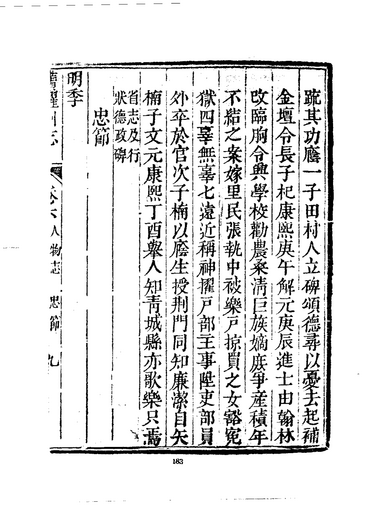 疏其功廕一子田村人立碑頌德尋以憂去起補
金壇令長子杞康熙庚午解元庚辰進士由翰林
改臨朐令興學校勸農桑清巨族嫡庶爭產積年
不結之案嫁里民張執中被樂戶掠買之女豁冤
獄四辜無辜七遠近稱神擢戶部主事陞吏部員
外卒於官次子楠以廕生授荆門同知廉潔自矢
楠子文元康熙丁酉舉人知青城縣亦歌樂只焉
省志及行
狀德政碑
忠節
明季
州志
卷六
人物志
忠節
九
183